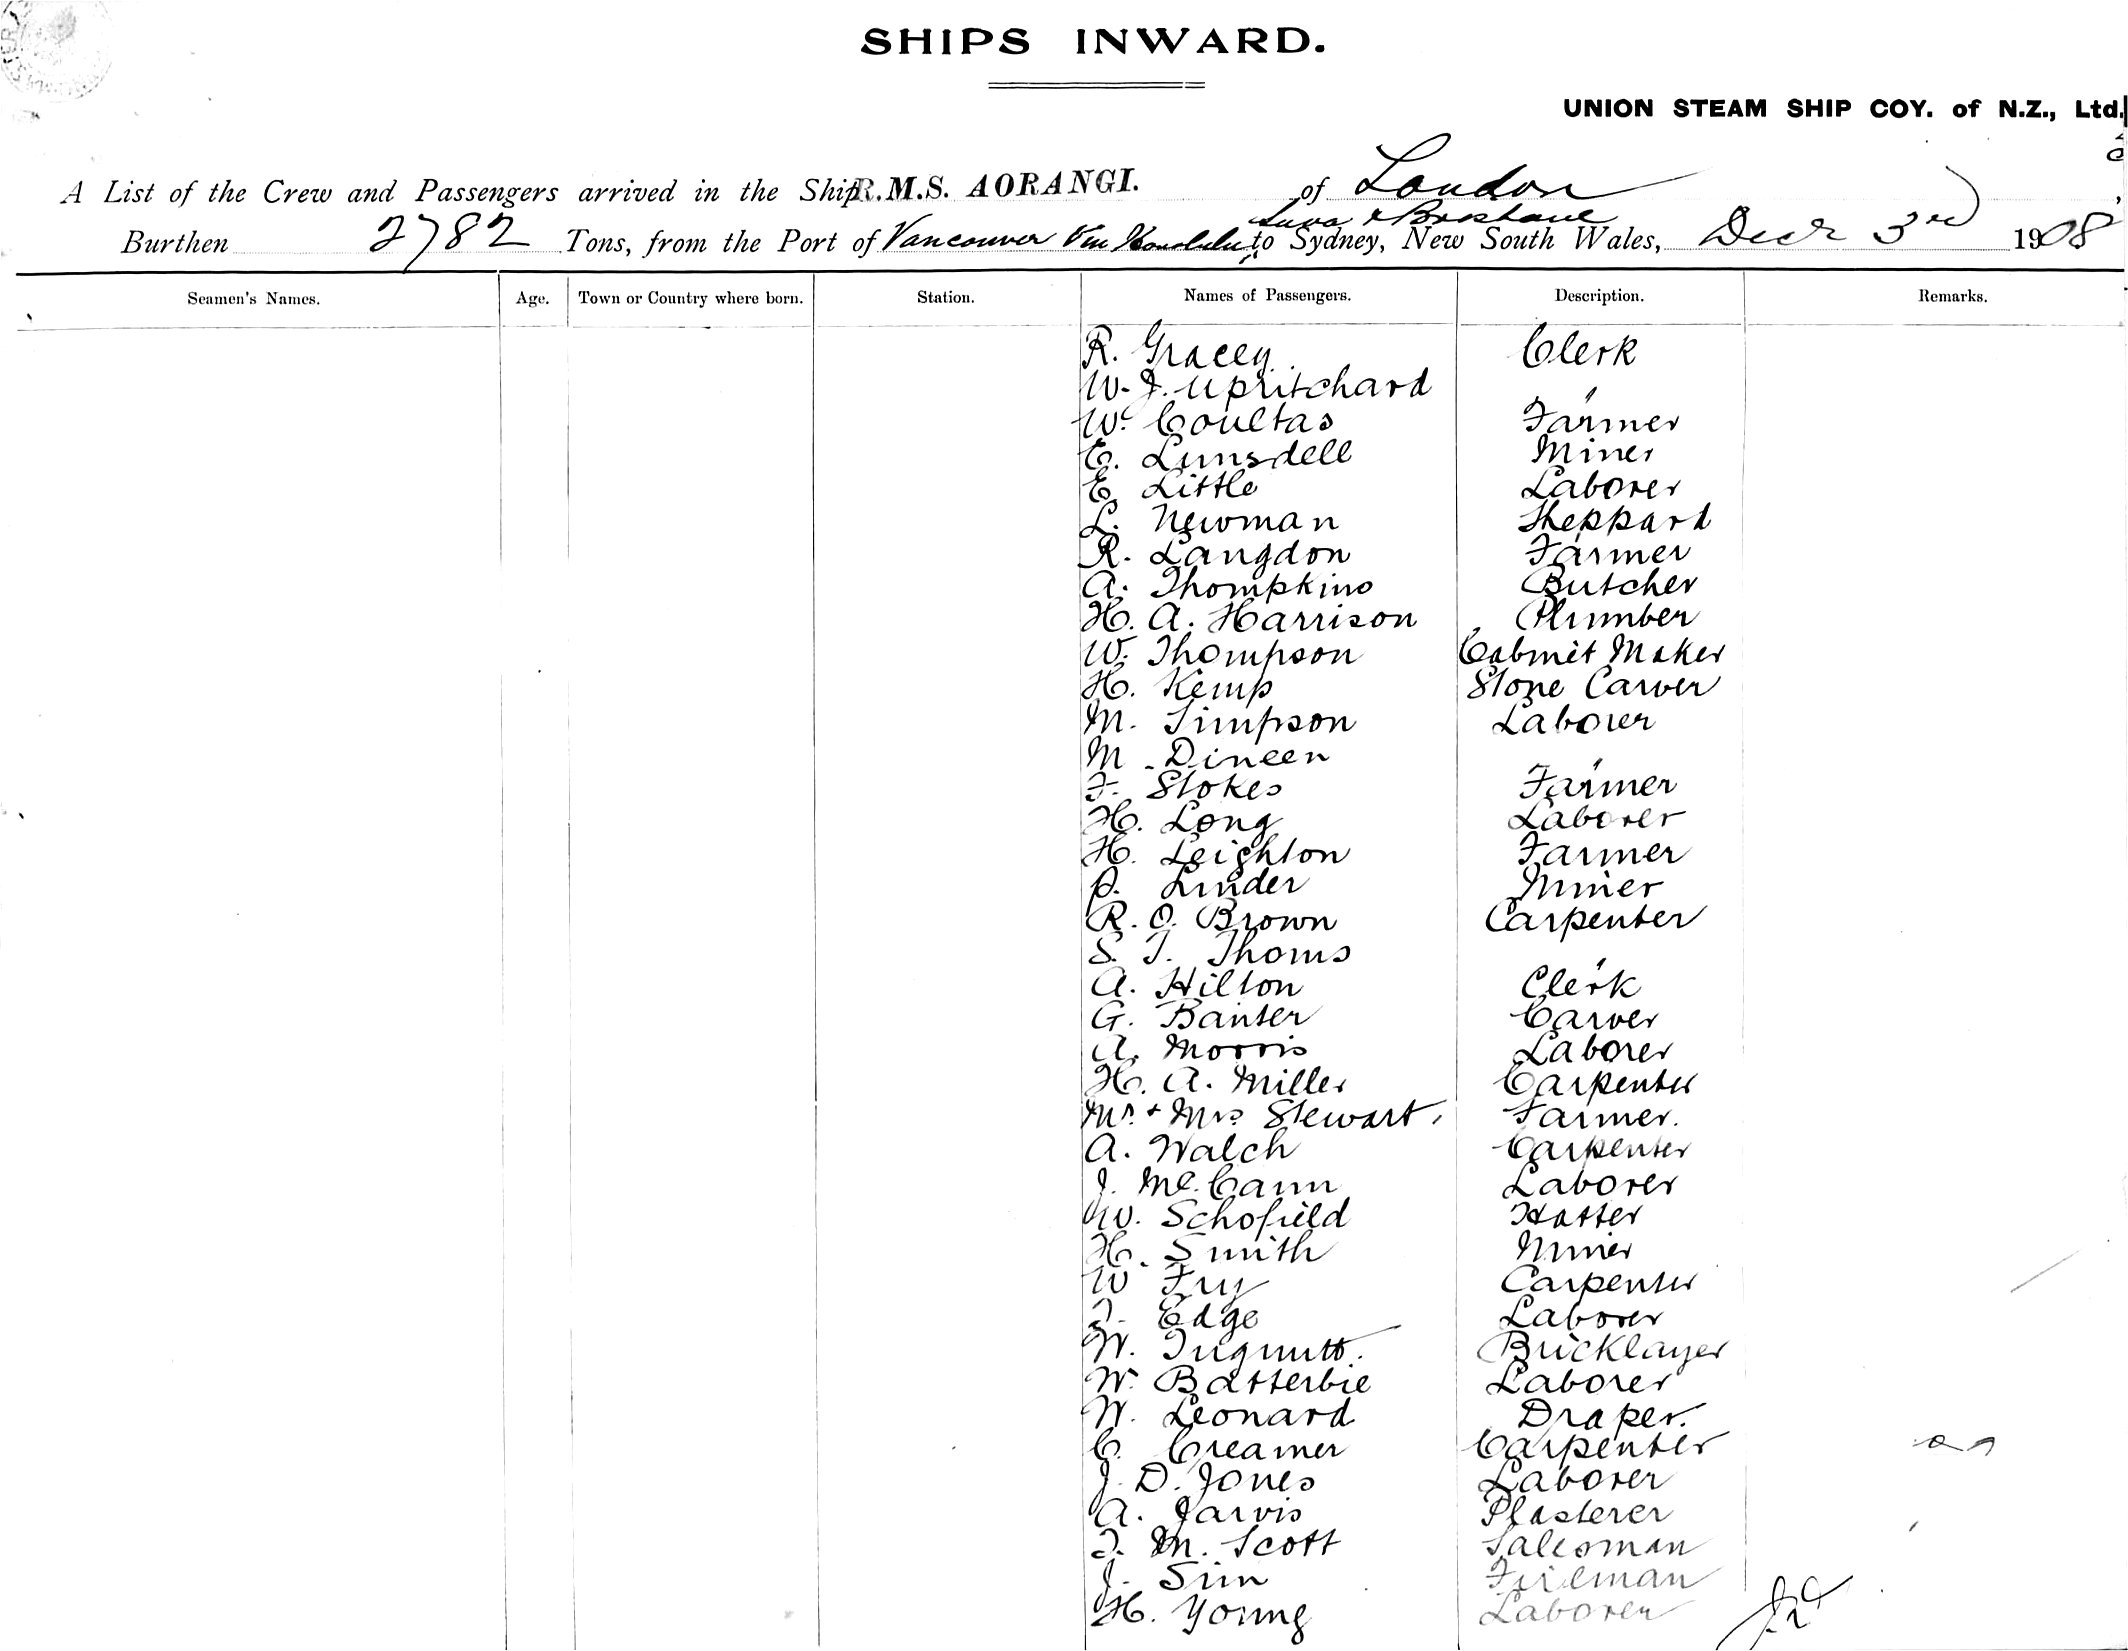 SHIPS INWARD.
UNION STEAM SHIP COY. of N.Z., Ltd.
A List of the Crew and Passengers arrived in the Ship R.M.S. AORANGI. of London
Suva & Brisbane
Burthen 2782 Tons, from the Port of Vancouver Via Honolulu, to Sydney, New South Wales, Decr 3rd 1908
Seamen's Names. Age. Town or Country where born. Station. Names of Passengers. Description. Remarks.
R. Gracey Clerk
W. J. Upritchard "
W. Coultas Farmer
E. Lumsdell Miner
E. Little Laborer
L. Newman Sheppard
R. Langdon Farmer
A. Thompkins Butcher
H. A. Harrison Plumber
W. Thompson Cabinet Maker
H. Kemp Stone Carver
M. Simpson Laborer
M. Dineen "
F. Stokes Farmer
H. Long Laborer
H. Leighton Farmer
P. Linder Miner
R. O. Brown Carpenter
S. T. Thoms "
A. Hilton Clerk
G. Banter Carver
A. Morris Laborer
H. A. Miller Carpenter
Mr. + Mrs. Stewart. Farmer.
A. Walch Carpenter
J. McCann Laborer
W. Schofield Hatter
H. Smith Miner
W Fry Carpenter
T. Edge Laborer
W. Bricklayer
W. Batterbie Laborer
W. Leonard Draper.
C. Creamer Carpenter
J. D. Jones Laborer
A. Jarvis Plasterer
T. M. Scott Salesman
J. Sim Fireman
H. Young Laborer